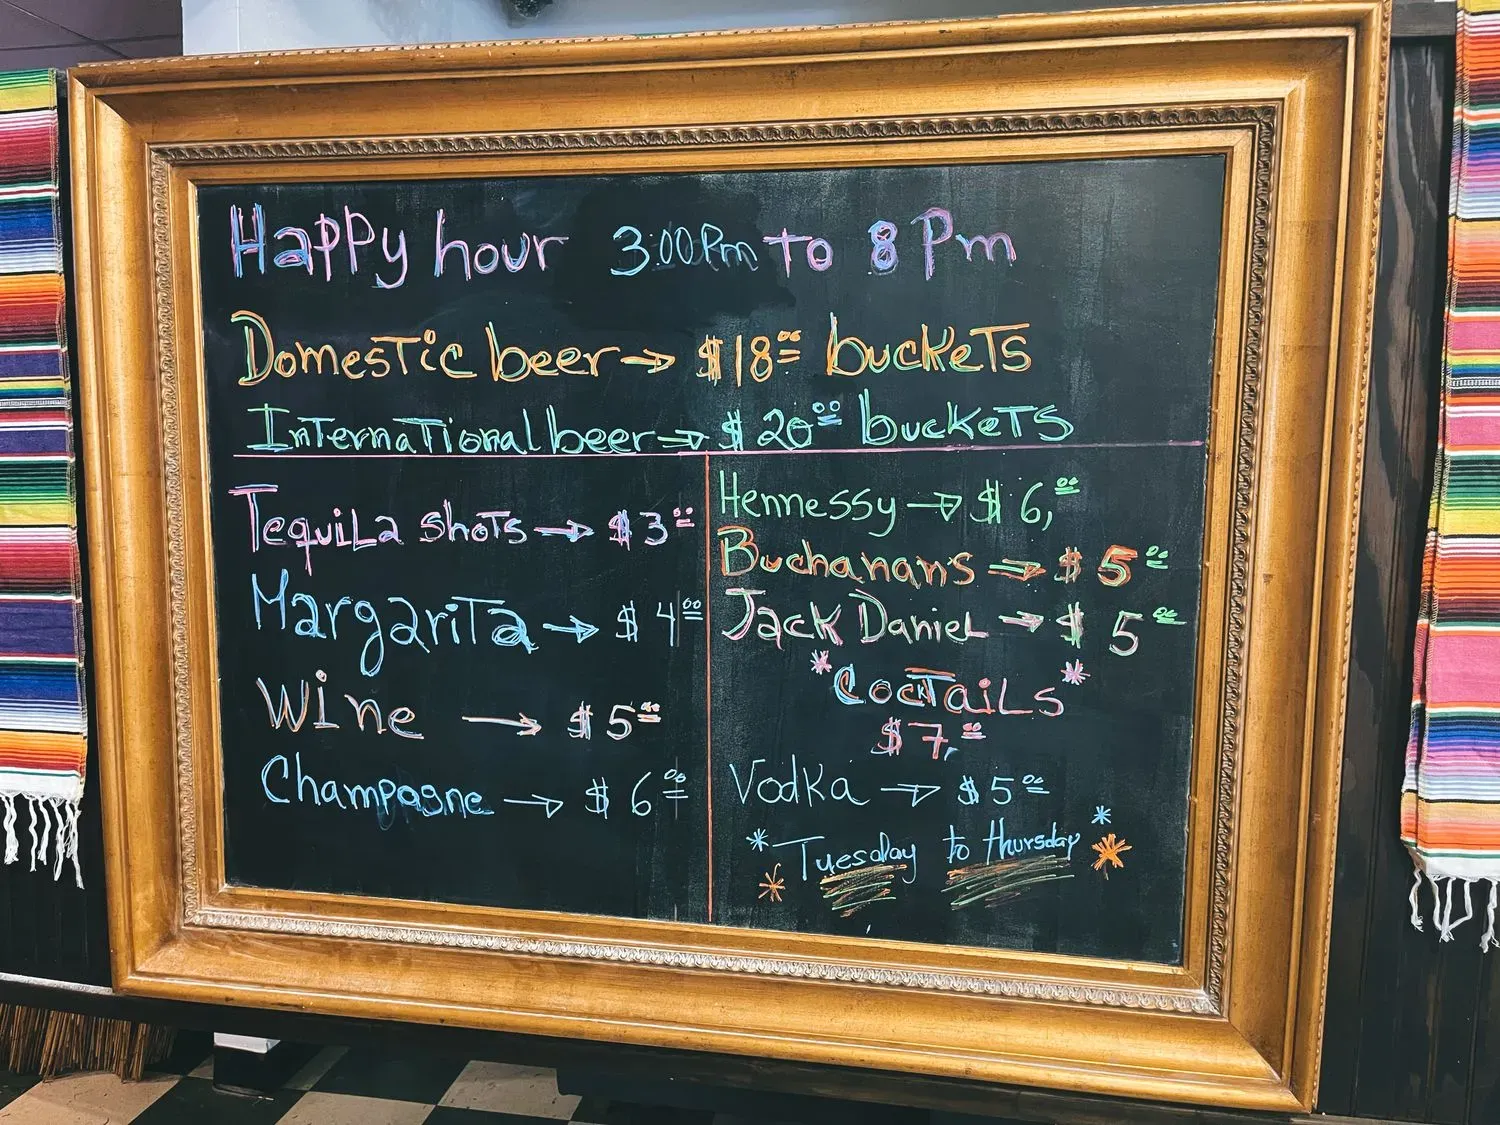 Happy hour 3:00 Pm to 8 Pm
Domestic beer → $18.00 buckets
International beer → $20.00 buckets
Tequila shots → $3.00
Margarita → $4.00
Wine → $5.00
Champagne → $6.00
Hennessy → $6,00
Buchanan's → $5.00
Jack Daniel → $5.00
*Coctails*
$7,00
Vodka → $5.00
* Tuesday to thursday *